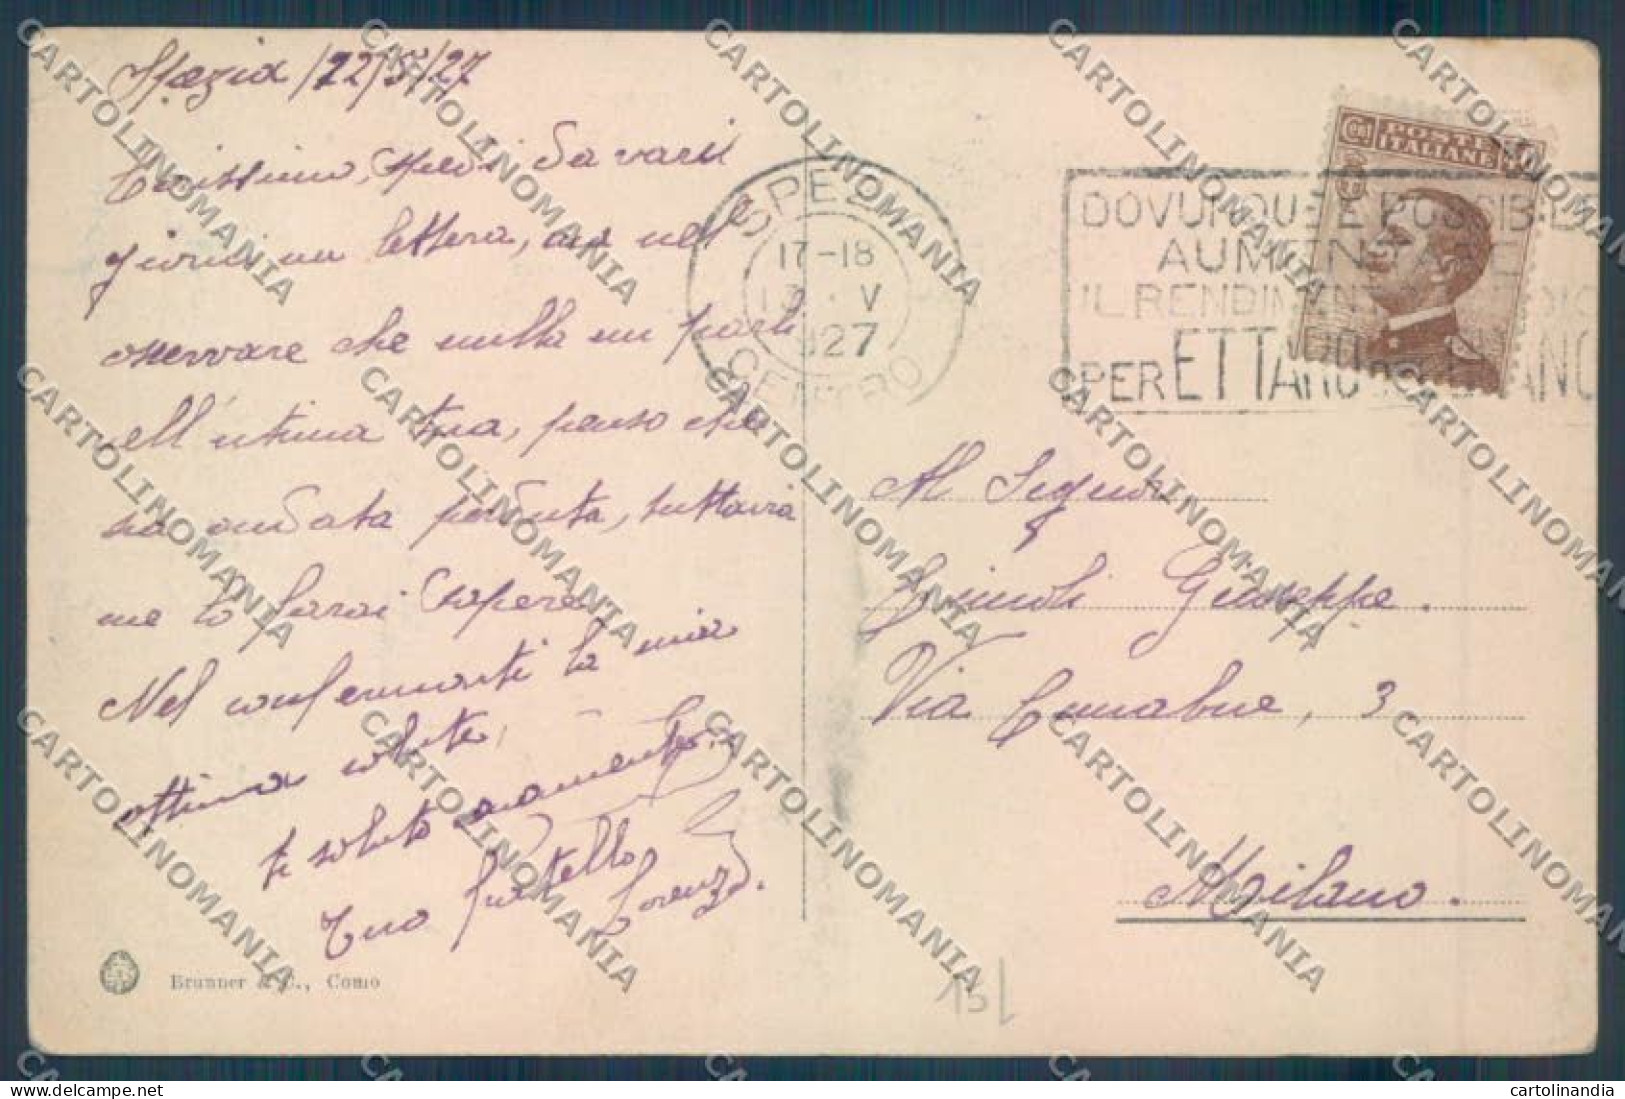 Spezia /12/5/27
Carissimo, spedii da varii
giorni una lettera, ma nel
osservare che nulla mi parli
nell'ultima tua, penso che
sia andata perduta, tuttavia
me lo farai sapere.
Nel confermarti la mia
ottima salute,
ti saluto caramente
Tuo fratello
Lorenzo.
Brunner & C., Como
SPEZIA
17-18
V
927
CENTRO
DOVUNQUE È POSSIBILE
AUMENTARE
IL RENDIMENTO
PER ETTARO
POSTE
ITALIANE
Cent
Al Signor
Giuseppe.
Via 3
Milano.
CARTOLINOMANIA
cartolinandia